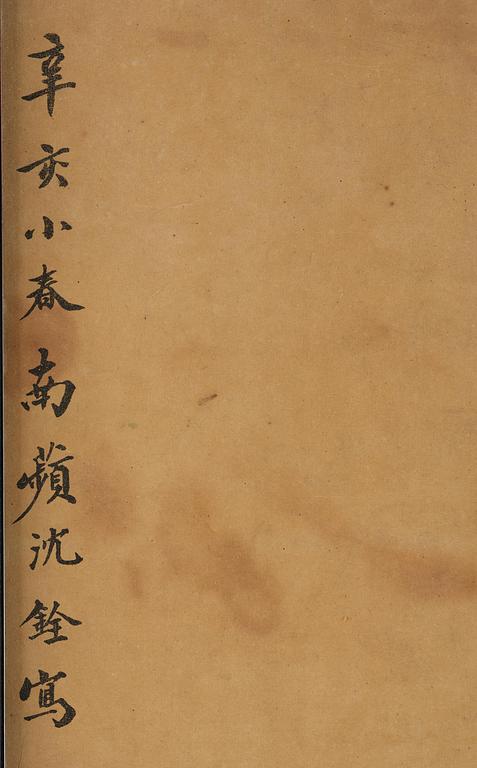 辛亥小春南蘋沈銓寫